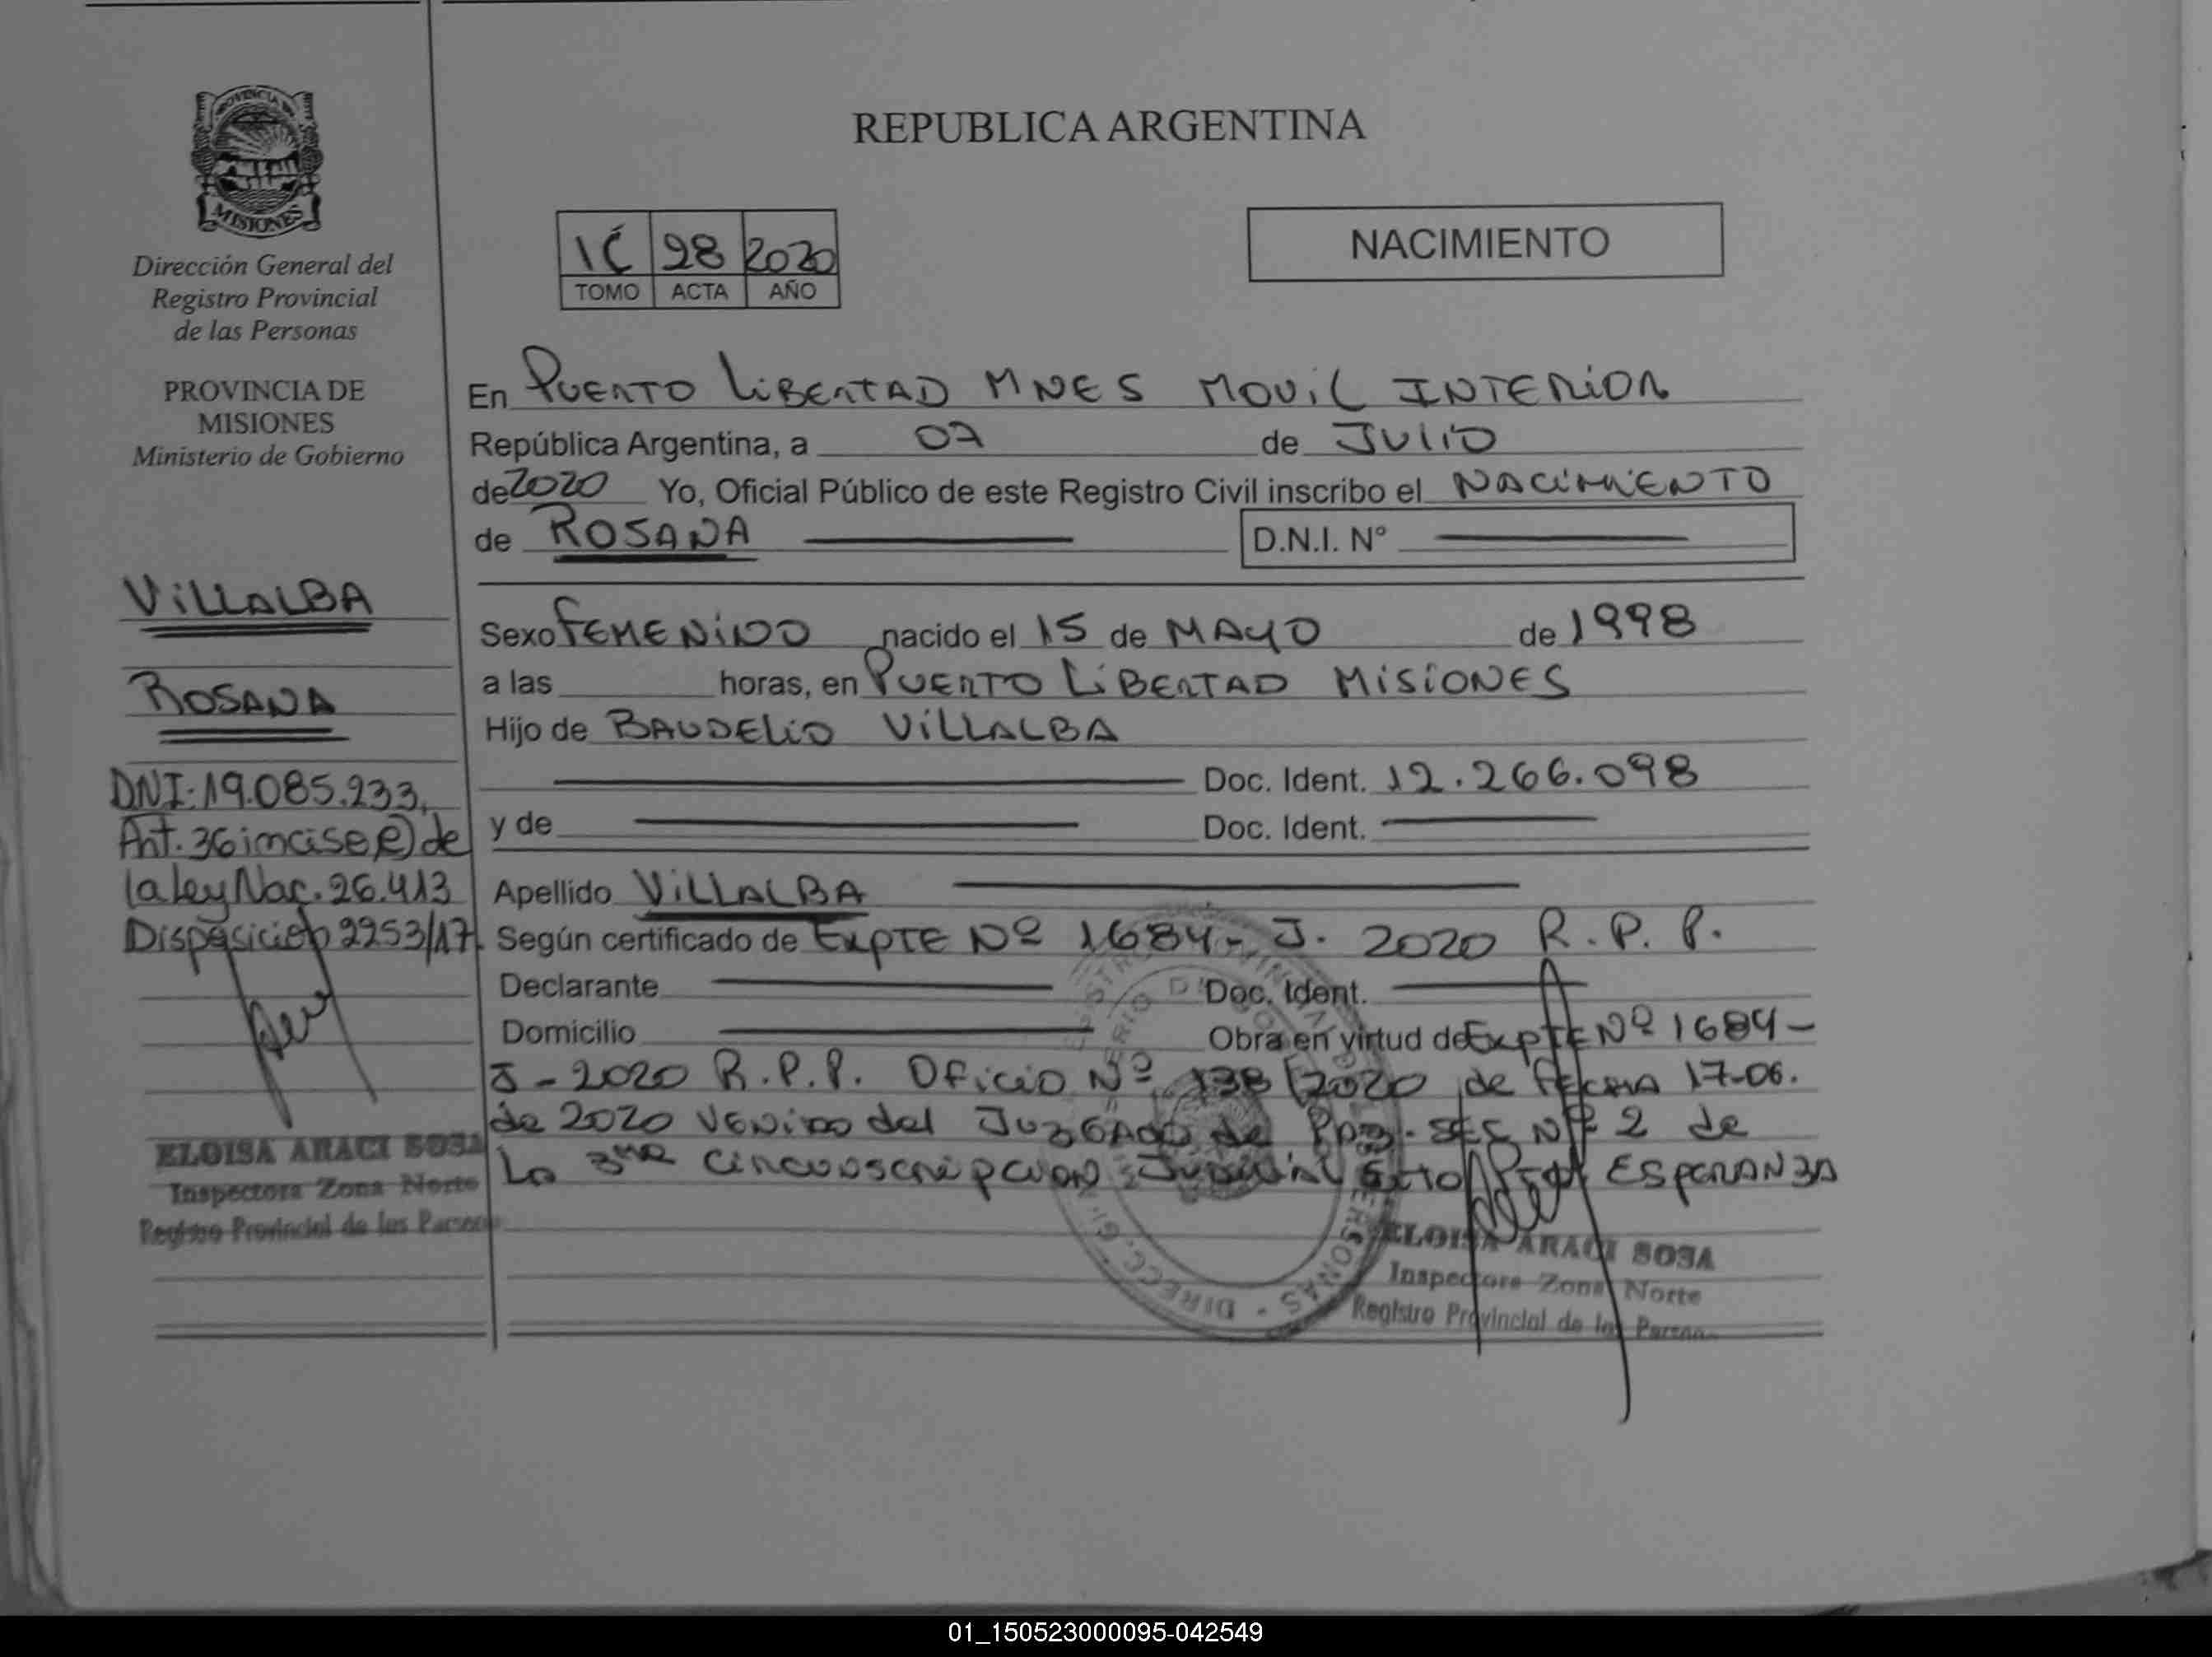 PROVINCIA DE
MISIONES
Dirección General del
Registro Provincial
de las Personas
PROVINCIA DE
MISIONES
Ministerio de Gobierno
VILLALBA
ROSANA
DNI: 19.085.233,
Art. 36 inciso e) de
la Ley Nac. 26.413
Disposición 2253/17.
ELOISA ARACI SOSA
Inspectora Zona Norte
Registro Provincial de las Person
REPUBLICA ARGENTINA
1C 28 2020
TOMO ACTA AÑO
NACIMIENTO
En PUERTO LIBERTAD MNES MOVIL INTERIOR
República Argentina, a 07 de JULIO
de 2020 Yo, Oficial Público de este Registro Civil inscribo el NACIMIENTO
de ROSANA D.N.I. N°
Sexo FEMENINO nacido el 15 de MAYO de 1998
a las horas, en PUERTO LIBERTAD MISIONES
Hijo de BAUDELIO VILLALBA
Doc. Ident. 12.266.098
y de Doc. Ident.
Apellido VILLALBA
Según certificado de EXPTE Nº 1684- J. 2020 R.P.P.
Declarante Doc. Ident.
Domicilio Obra en virtud de EXPTE Nº 1684-
J-2020 R.P.P. OFICIO Nº 138/2020 de FECHA 17-06.
de 2020 VENIDO del JUZGADO de Nº 2 de
LA 3RA CIRCUNSCRIPCION JUDICIAL ESPERANZA
ELOISA ARACI SOSA
Inspectora Zona Norte
Registro Provincial de las Person
01_150523000095-042549